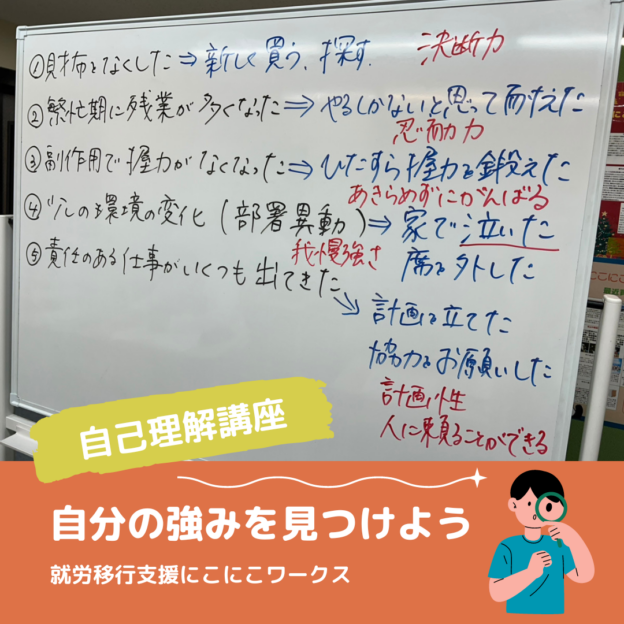 ①財布をなくした⇒新しく買う、探す.
決断力
②繁忙期に残業が多くなった⇒やるしかないと思って耐えた
忍耐力
③副作用で握力がなくなった⇒ひたすら握力を鍛えた
あきらめずにがんばる
④の環境の変化(部署異動)⇒家で泣いた
我慢強さ
席を外した
⑤責任のある仕事がいくつも出てきた
計画を立てた
協力をお願いした
計画性
人に頼ることができる
自己理解講座
自分の強みを見つけよう
就労移行支援にこにこワークス